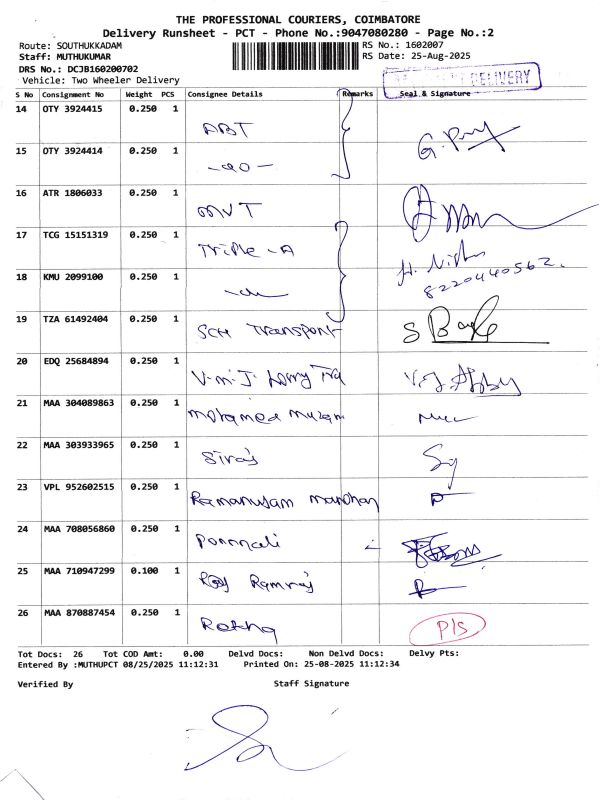 THE PROFESSIONAL COURIERS, COIMBATORE
Delivery Runsheet - PCT - Phone No.:9047080280 - Page No.:2
Route: SOUTHUKKADAM RS No.: 1602007
Staff: MUTHUKUMAR RS Date: 25-Aug-2025
DRS No.: DCJB160200702
Vehicle: Two Wheeler Delivery DELIVERY
S No Consignment No Weight PCS Consignee Details Remarks Seal & Signature
14 OTY 3924415 0.250 1 ABT
15 OTY 3924414 0.250 1 -do-
16 ATR 1806033 0.250 1 MVT
17 TCG 15151319 0.250 1 Triple -A
18 KMU 2099100 0.250 1 -do- 8220440562.
19 TZA 61492404 0.250 1 SCH Transport
20 EDQ 25684894 0.250 1 V.M.J. Lorry
21 MAA 304089863 0.250 1 Mohamed
22 MAA 303933965 0.250 1 Siraj
23 VPL 952602515 0.250 1 Ramanujam
24 MAA 708056860 0.250 1 Ponmali
25 MAA 710947299 0.100 1 Ramraj
26 MAA 870887454 0.250 1 Rekha P/S
Tot Docs: 26 Tot COD Amt: 0.00 Delvd Docs: Non Delvd Docs: Delvy Pts:
Entered By :MUTHUPCT 08/25/2025 11:12:31 Printed On: 25-08-2025 11:12:34
Verified By Staff Signature